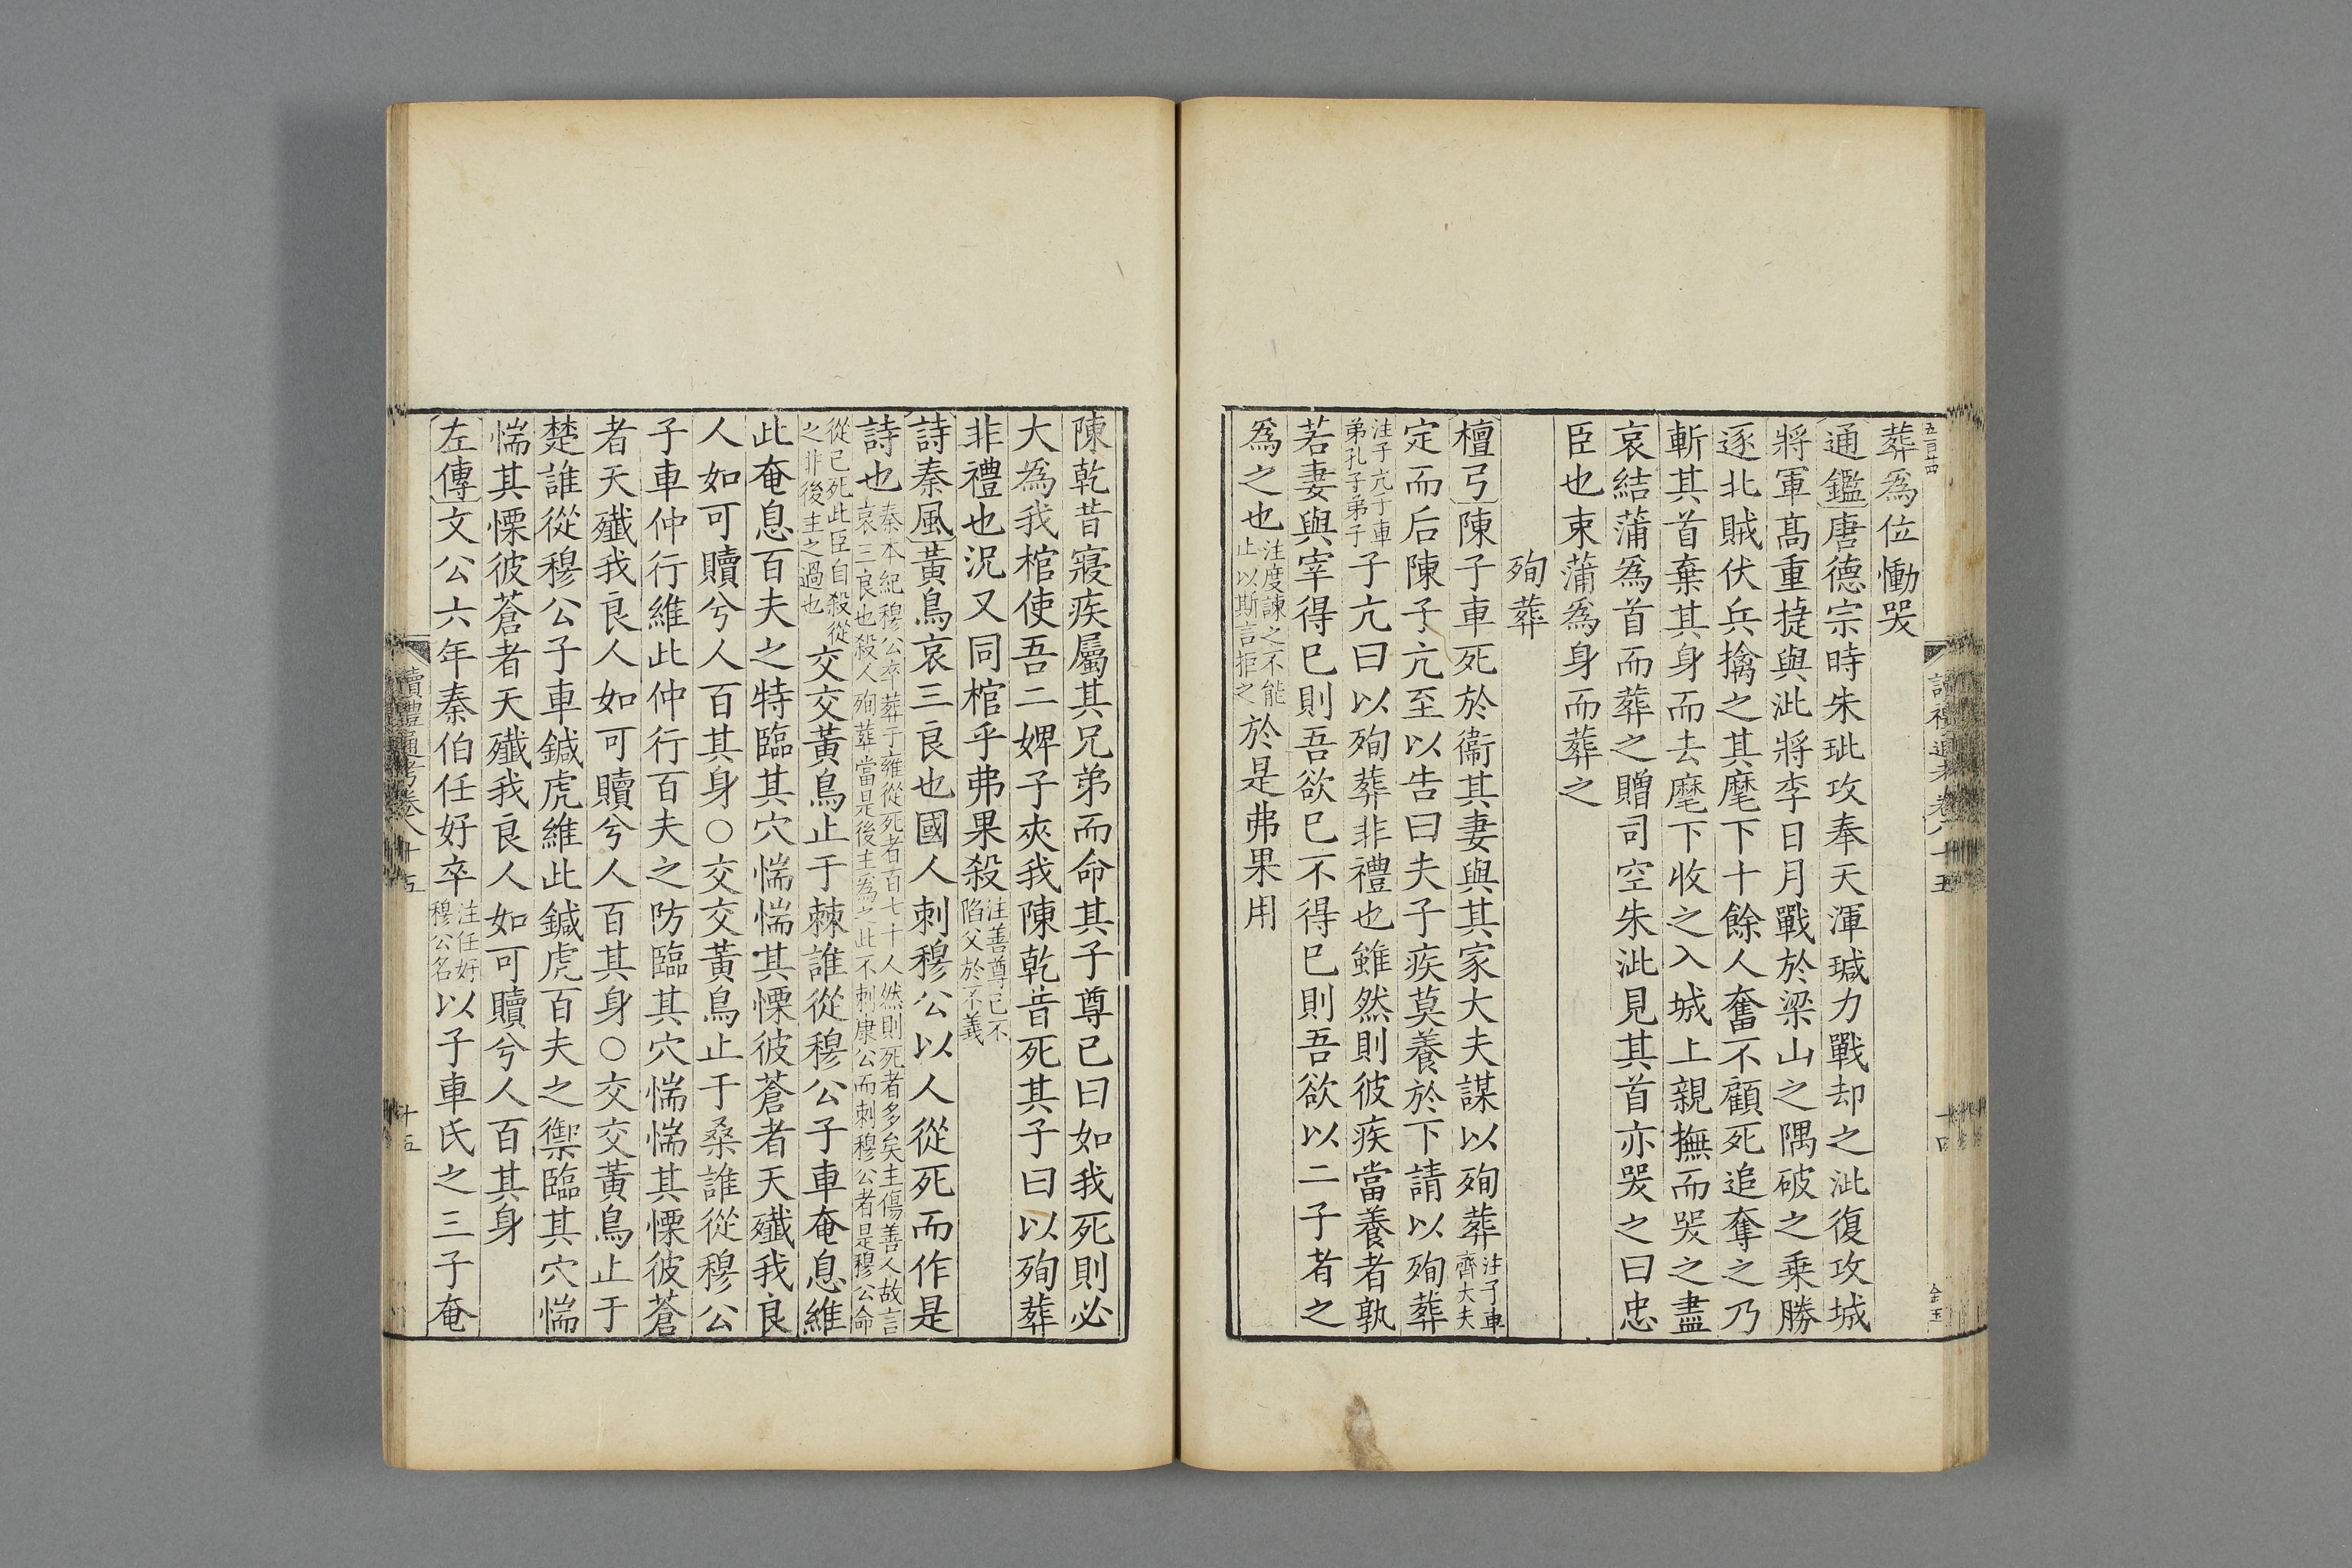 五百廿四
葬爲位慟哭
通鑑唐德宗時朱玼攻奉天渾瑊力戰却之泚復攻城
將軍髙重㨗與泚將李日月戰於梁山之隅破之乗勝
逐北賊伏兵擒之其麾下十餘人奮不顧死追奪之乃
斬其首棄其身而去麾下收之入城上親撫而哭之盡
哀結蒲爲首而葬之贈司空朱泚見其首亦哭之曰忠
臣也束蒲爲身而葬之
殉葬
檀弓陳子車死於衞其妻與其家大夫謀以殉葬注子車齊大夫
定而后陳子亢至以告曰夫子疾莫養於下請以殉葬
注子亢子車弟孔子弟子子亢曰以殉葬非禮也雖然則彼疾當養者孰
若妻與宰得已則吾欲已不得已則吾欲以二子者之
爲之也注度諫之不能止以斯言拒之於是弗果用
陳乾昔寢疾屬其兄弟而命其子尊已曰如我死則必
大爲我棺使吾二婢子夾我陳乾昔死其子曰以殉葬
非禮也況又同棺乎弗果殺注善尊已不陷父於不義
詩秦風黃鳥哀三良也國人刺穆公以人從死而作是
詩也秦本紀穆公卒葬于雍從死者百七十人然則死者多矣主傷善人故言哀三良也殺人殉葬當是後主爲之此不刺康公而刺穆公者是穆公命
從已死此臣自殺從之非後主之過也交交黃鳥止于棘誰從穆公子車奄息維
此奄息百夫之特臨其穴惴惴其慄彼蒼者天殲我良
人如可贖兮人百其身○交交黃鳥止于桑誰從穆公
子車仲行維此仲行百夫之防臨其穴惴惴其慄彼蒼
者天殲我良人如可贖兮人百其身○交交黃鳥止于
楚誰從穆公子車鍼虎維此鍼虎百夫之禦臨其穴惴
惴其慄彼蒼者天殲我良人如可贖兮人百其身
左傳文公六年秦伯任好卒注任好穆公名以子車氏之三子奄
讀禮通考卷八十五
十五